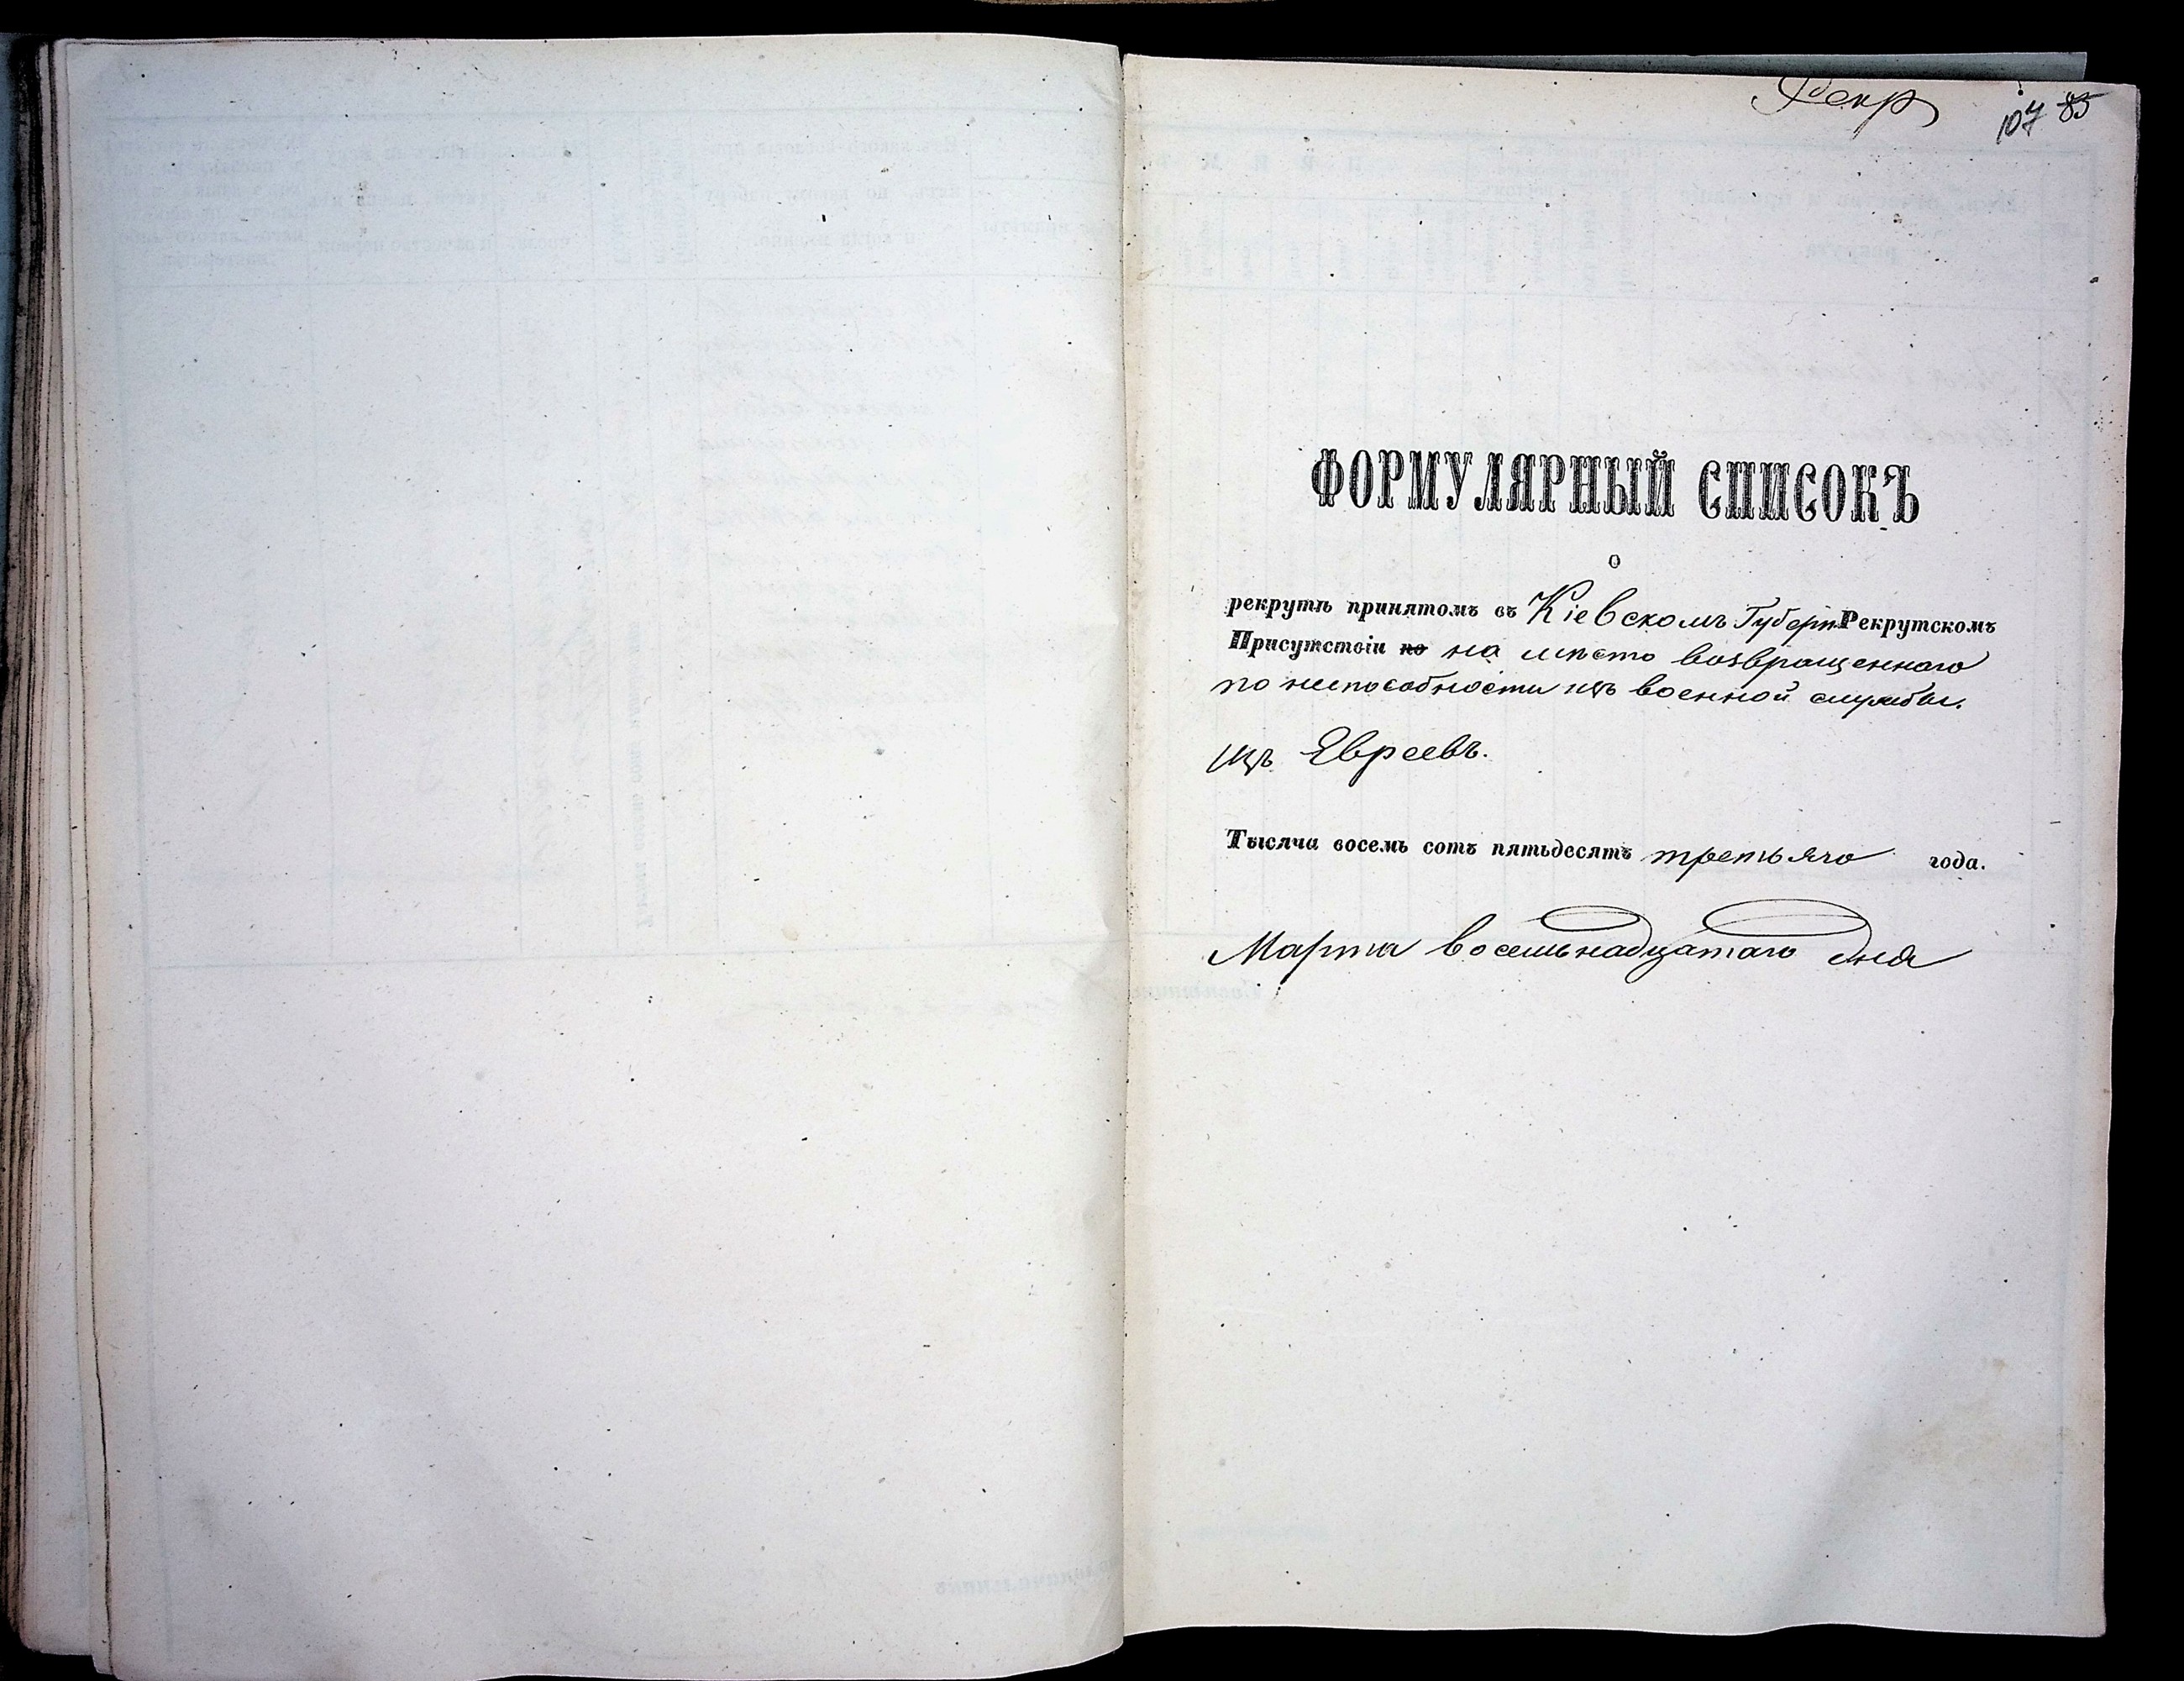 Рекр
107 85
ФОРМУЛЯРНЫЙ СПИСОКЪ
о
рекрутѣ принятомъ въ Кіевскомъ Губерн Рекрутскомъ
Присутствіи по на мѣсто возвращеннаго
по неспособности изъ военной службы.
изъ Евреевъ.
Тысяча восемь сотъ пятьдесятъ третьяго года.
Марта восемьнадцатаго дня